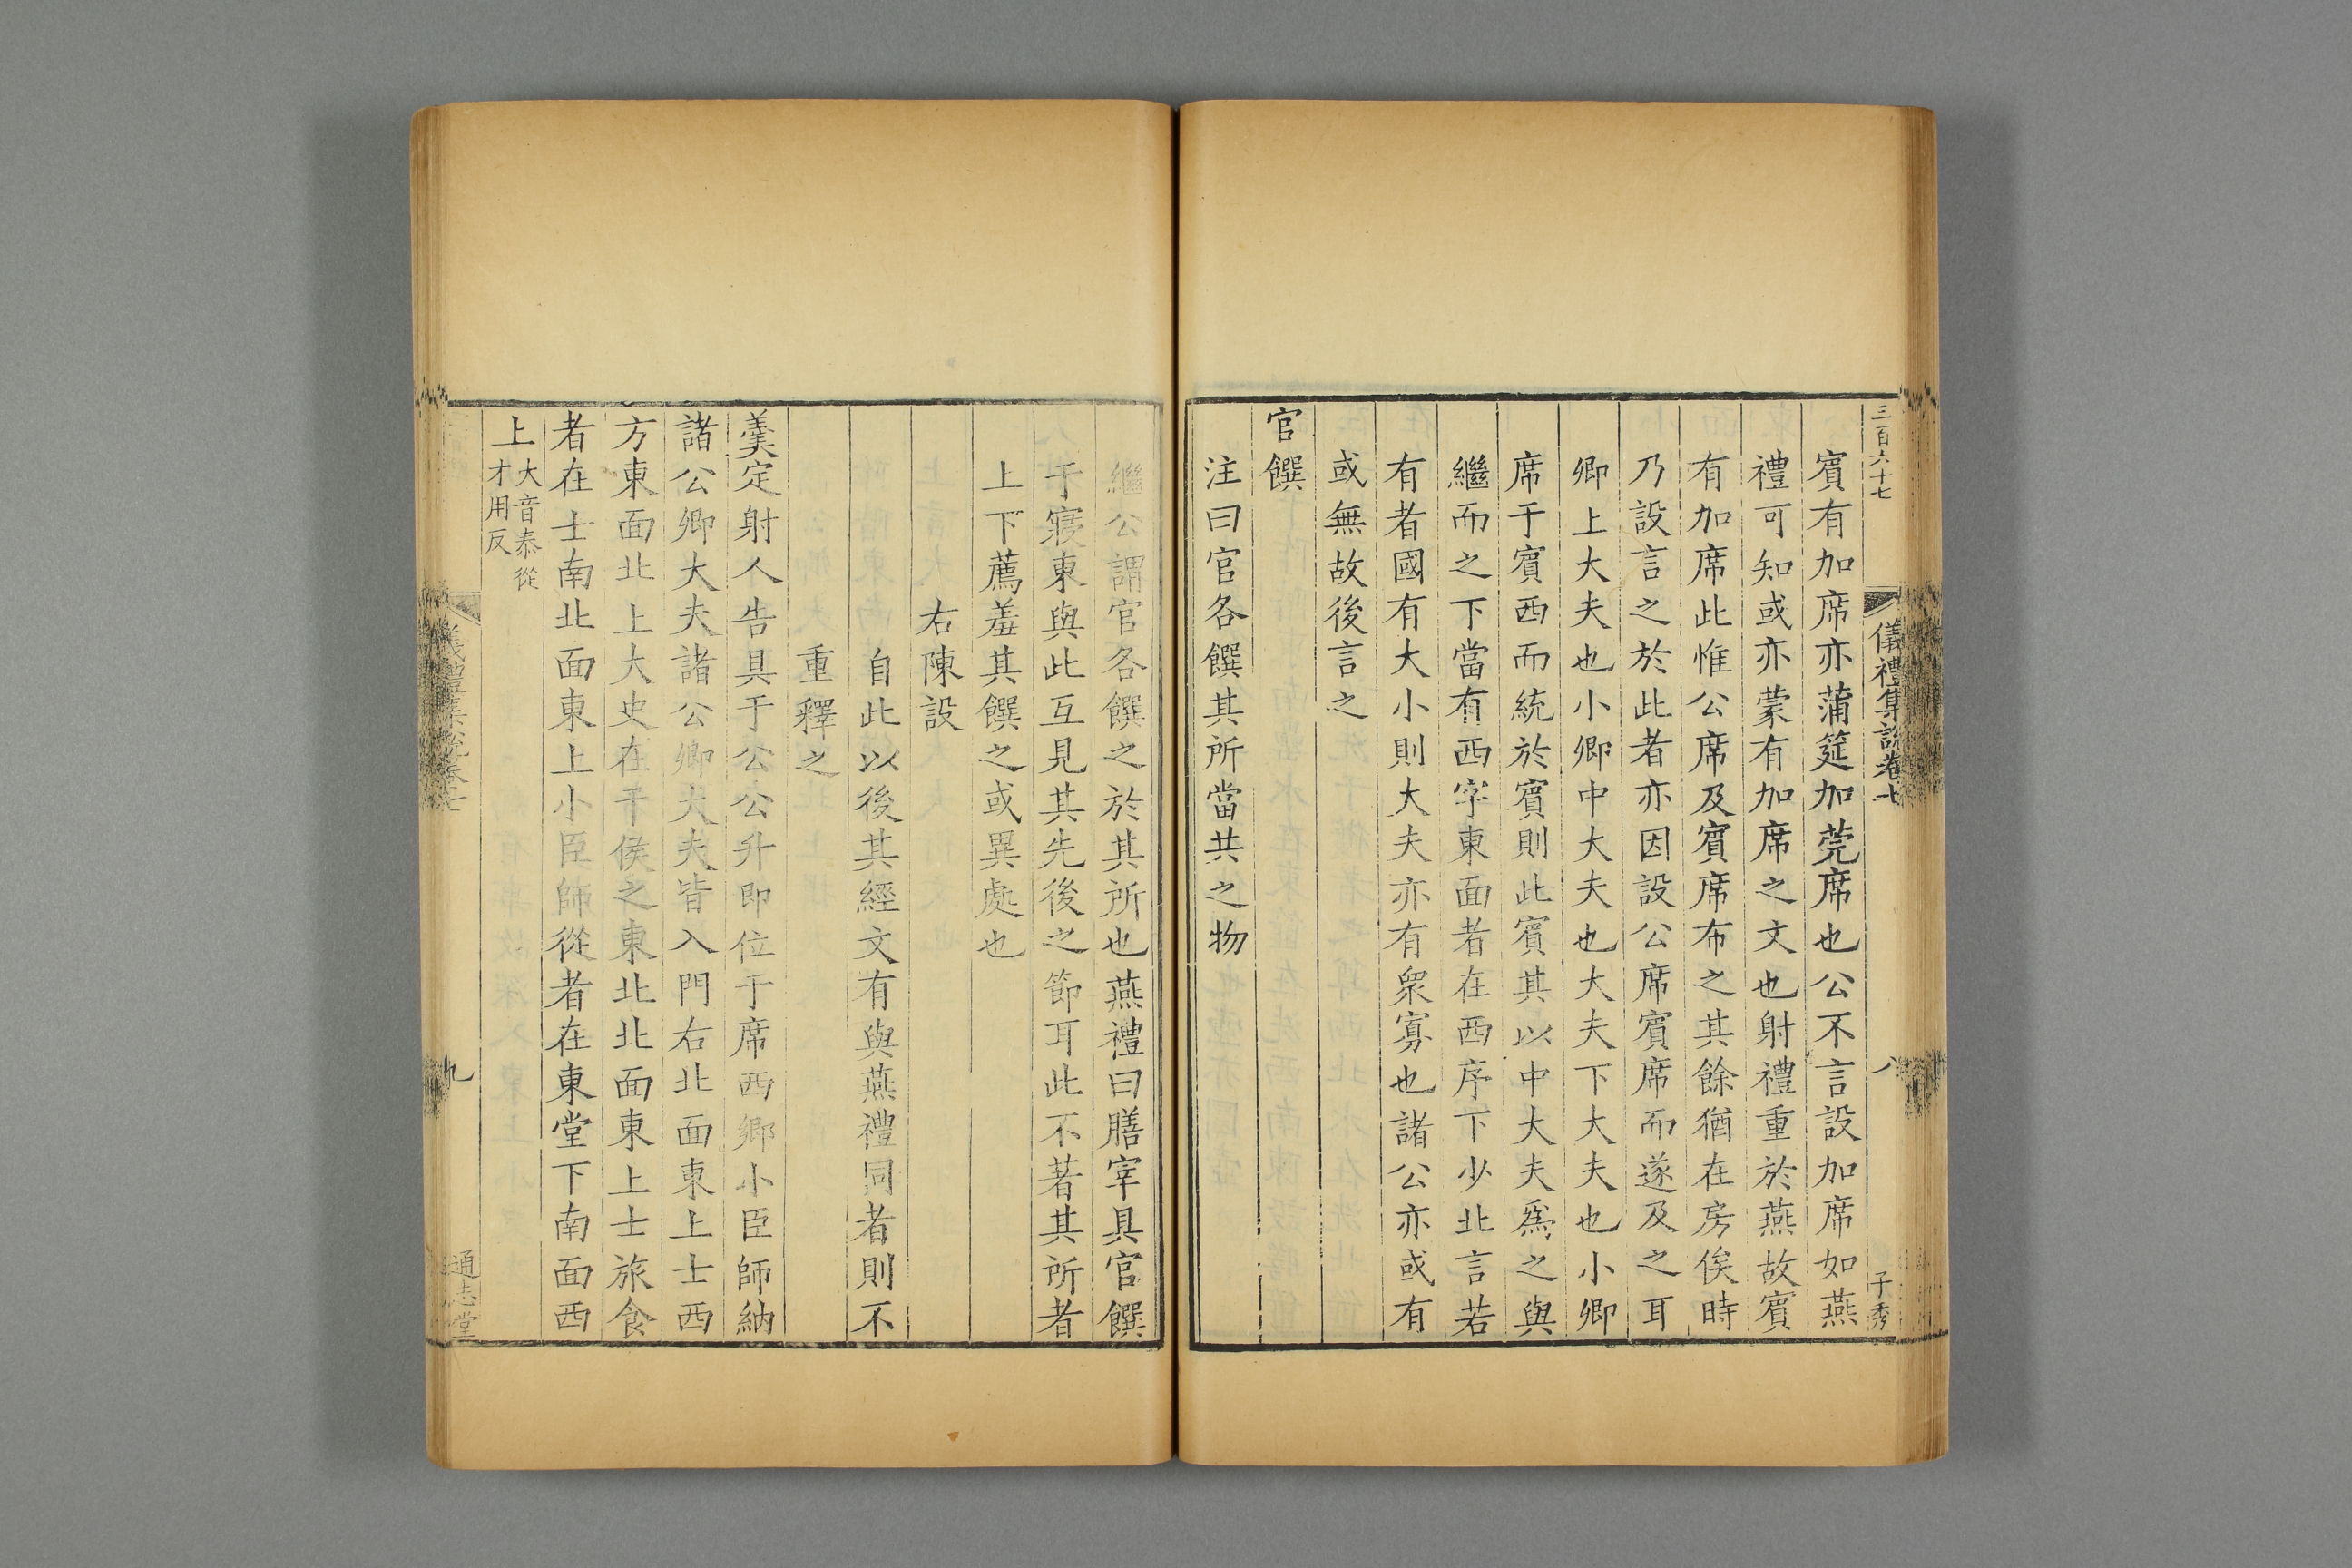 三百六十七
儀禮集說卷七
八
子秀
賓有加席亦蒲筵加莞席也公不言設加席如燕
禮可知或亦蒙有加席之文也射禮重於燕故賓
有加席此惟公席及賓席布之其餘猶在房俟時
乃設言之於此者亦因設公席賓席而遂及之耳
卿上大夫也小卿中大夫也大夫下大夫也小卿
席于賓西而統於賓則此賓其以中大夫爲之與
繼而之下當有西字東面者在西序下少北言若
有者國有大小則大夫亦有衆寡也諸公亦或有
或無故後言之
官饌
注曰官各饌其所當共之物
繼公謂官各饌之於其所也燕禮曰膳宰具官饌
于寢東與此互見其先後之節耳此不著其所者
上下薦羞其饌之或異處也
右陳設
自此以後其經文有與燕禮同者則不
重釋之
羹定射人告具于公公升即位于席西鄉小臣師納
諸公卿大夫諸公卿大夫皆入門右北面東上士西
方東面北上大史在干侯之東北北面東上士旅食
者在士南北面東上小臣師從者在東堂下南面西
上大音泰從才用反
儀禮集說卷七
九
通志堂